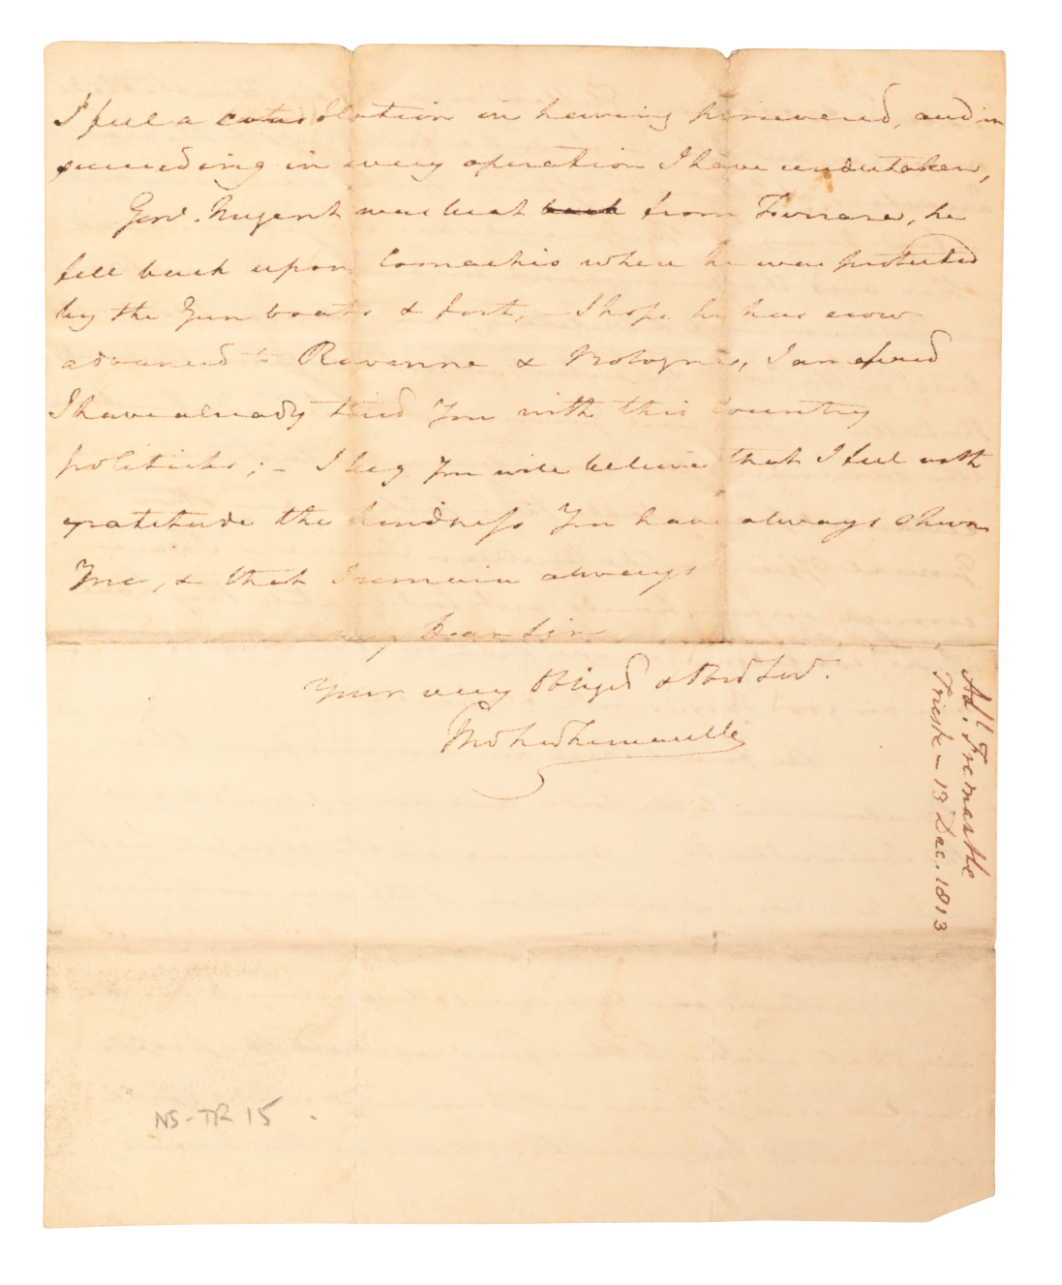 I feel a consolation in having persevered, and in
succeeding in every operation I have undertaken,
Genl. Nugent was beat back from Ferrara, he
fell back upon Comachio where he was protected
by the Gun boats & fort, - I hope he has now
advanced to Ravenna & Bologna, I am afraid
I have already tired You with this Country
politicks; - I beg You will believe that I feel with
gratitude the kindness You have always shewn
Me, & that I remain always
my Dear Sir
Your very Obliged &
Thos Fras Fremantle
Adl. Fremantle
Trieste - 13 Dec. 1813
NS-TR 15